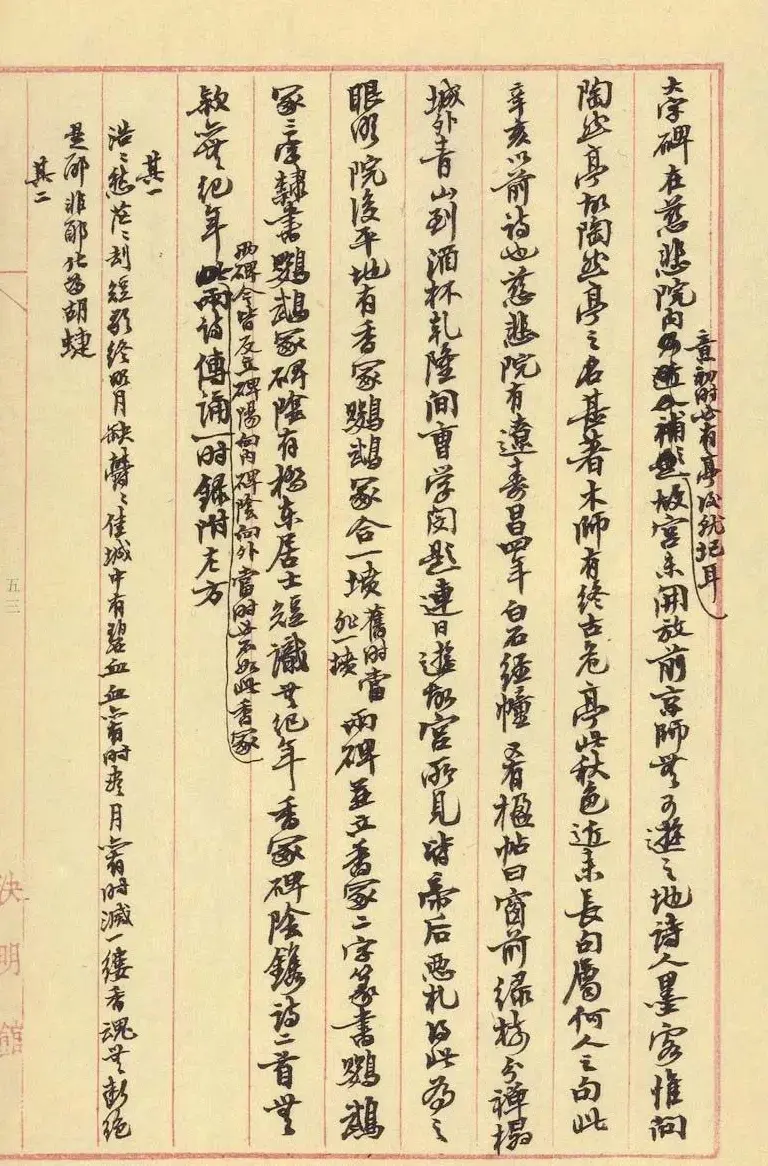 大字碑在慈悲院内乃近人補題故宮未開放前京師無可遊之地詩人墨客惟向
意初時必有亭後就圮耳
陶然亭故陶然亭之名甚著木師有終古危亭此秋色近來長句屬何人之句此
辛亥以前詩也慈悲院有遼壽昌四年白石經幢又有楹帖曰窗前緑樹分禅榻
城外青山到酒杯乾隆間曹学閔題連日遊故宮所見皆帝后惡札得此為之
眼明院後平地有香冢鸚鵡冢合一墳舊时當非一墳兩碑並立香冢二字篆書鸚鵡
冢三字隸書鸚鵡冢碑陰有橋東居士短識無纪年香冢碑陰鐫詩二首無
兩碑今皆反立碑陽向内碑陰向外當时必不如此香冢
款無纪年此兩詩傳誦一时録附左方
其一
浩〻愁茫〻刧短歌終明月缺鬱〻佳城中有碧血血亦有时盡月亦有时滅一縷香魂無断绝
是耶非耶化為胡蝶
其二
五三
決明館